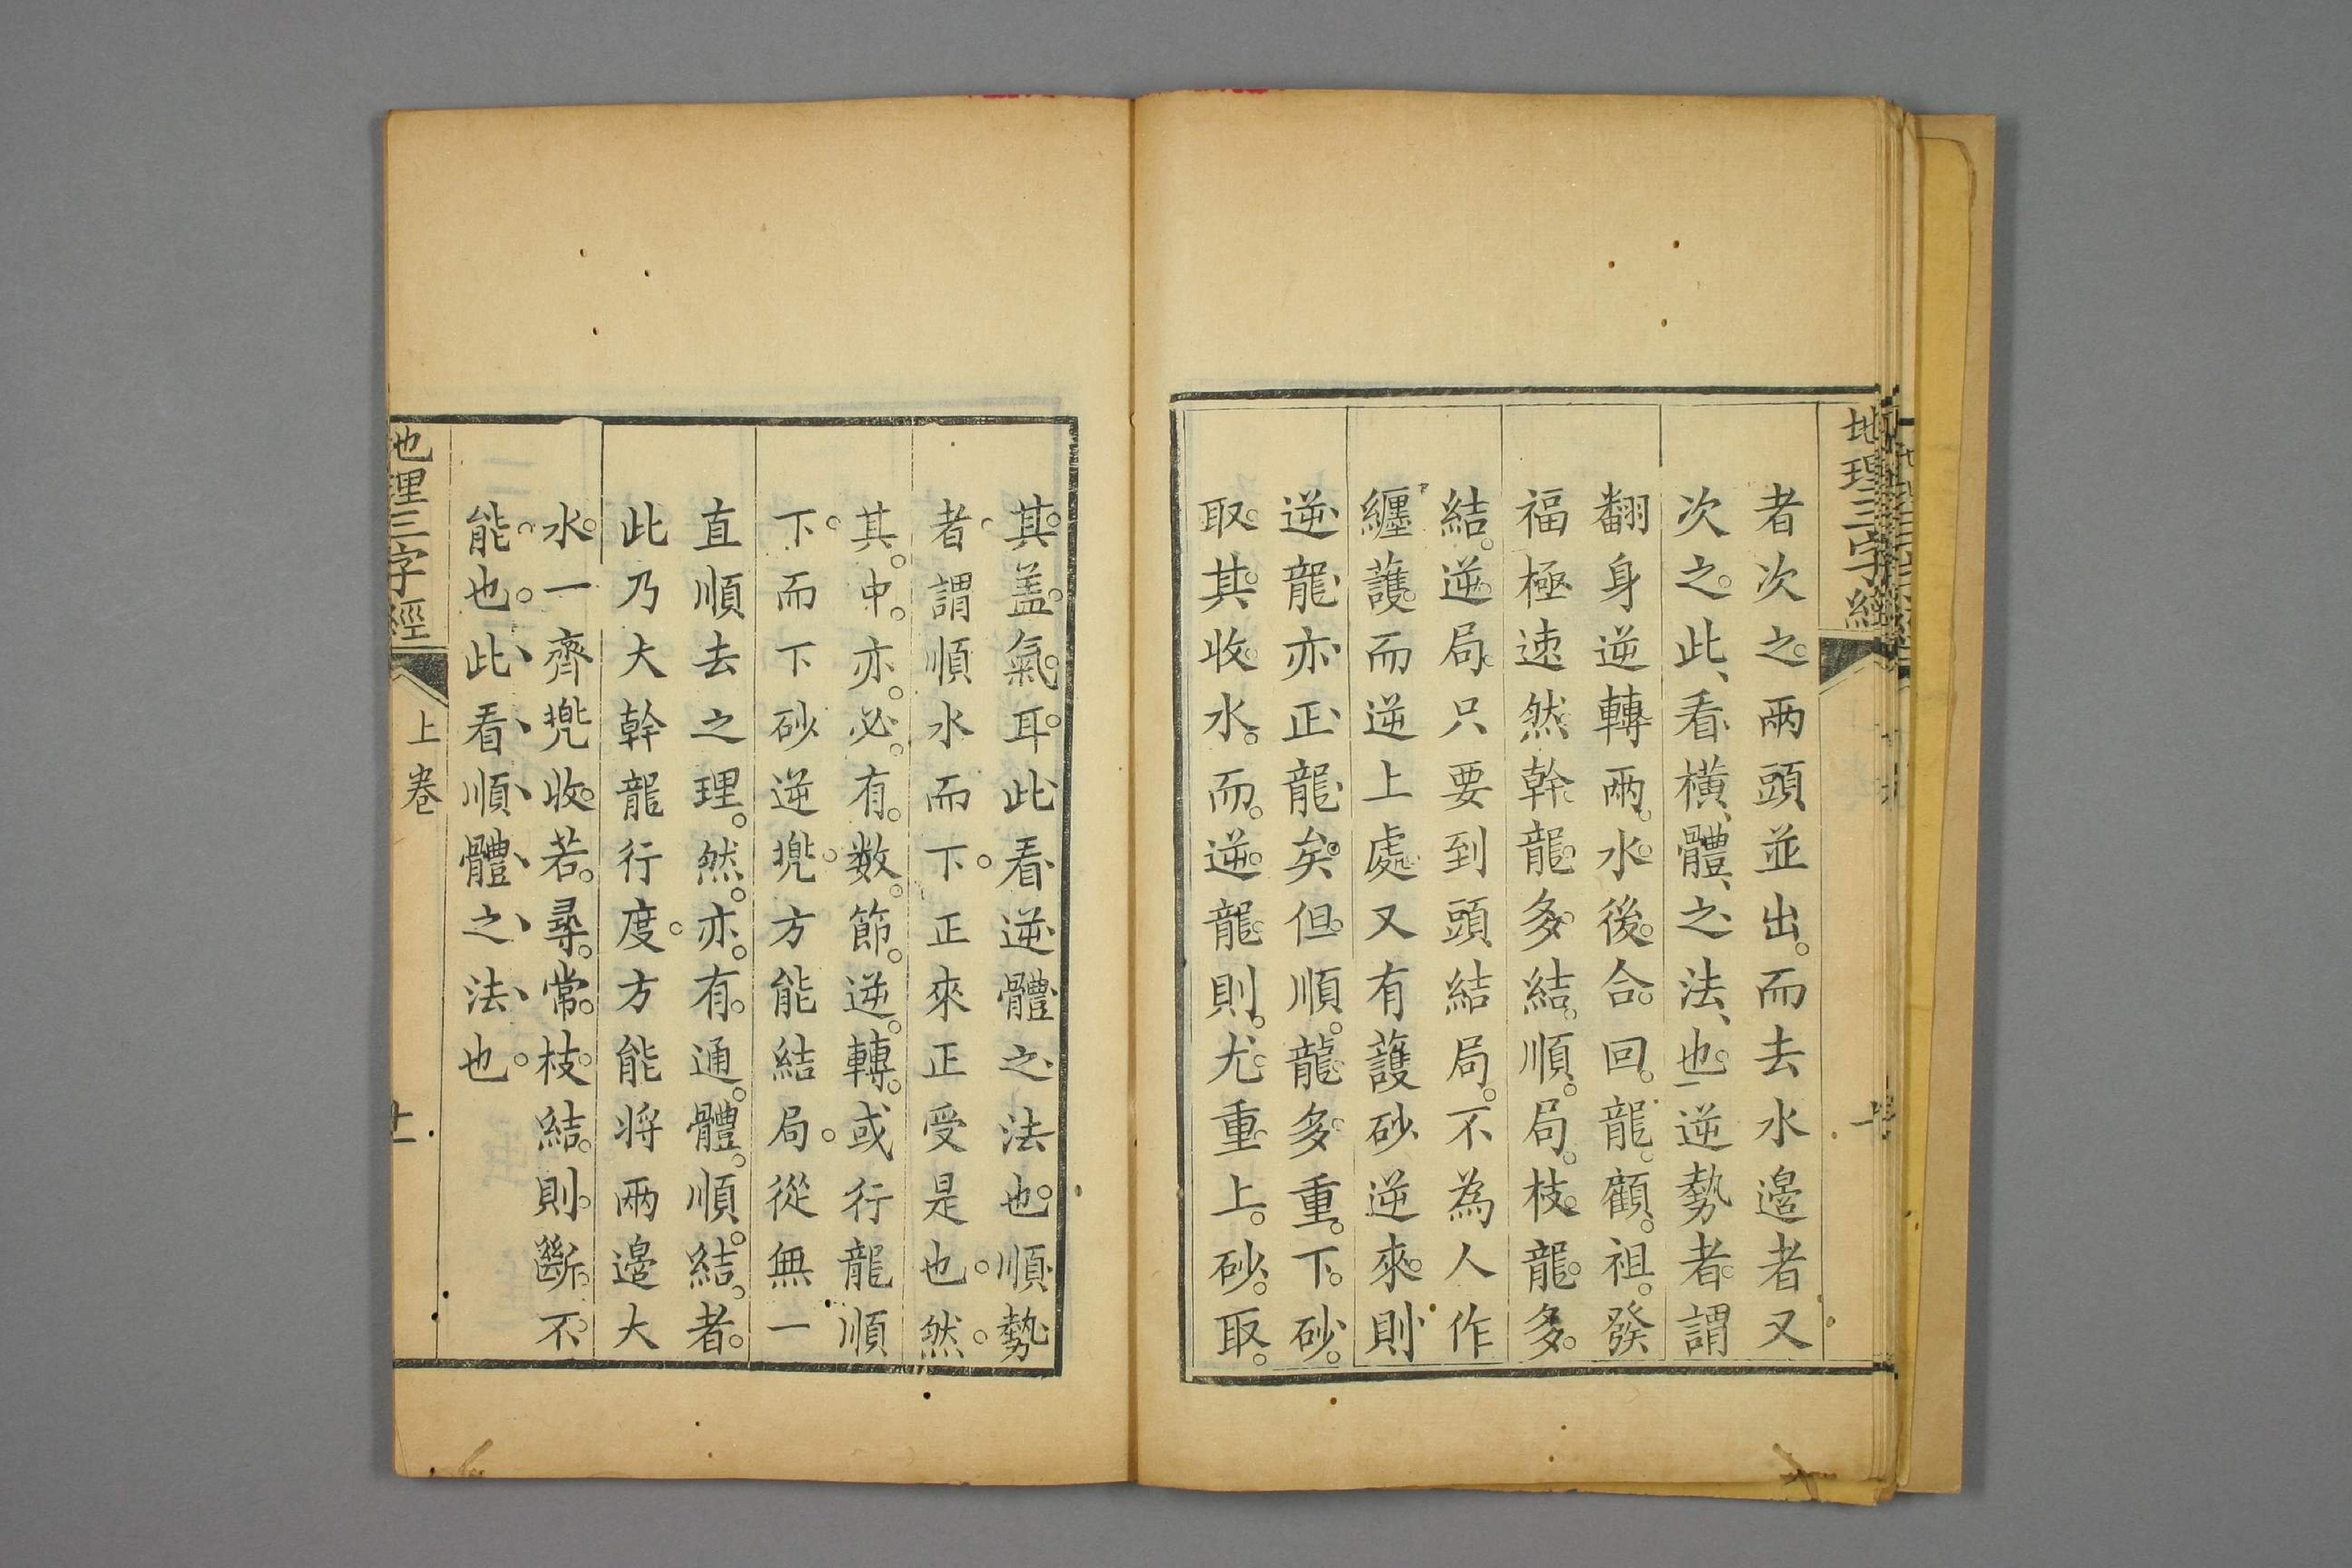 地理三字經
者次之兩頭並出而去水邊者又
次之此看橫體之法也逆勢者謂
翻身逆轉兩水後合回龍顧祖發
福極速然幹龍多結順局枝龍多
結逆局只要到頭結局不為人作
纏護而逆上處又有護砂逆來則
逆龍亦正龍矣但順龍多重下砂
取其收水而逆龍則尤重上砂取
其蓋氣耳此看逆體之法也順勢
者謂順水而下正來正受是也然
其中亦必有数節逆轉或行龍順
下而下砂逆兜方能結局從無一
直順去之理然亦有通體順結者
此乃大幹龍行度方能将兩邊大
水一齊兜收若尋常枝結則斷不
能也此看順體之法也
地理三字經
上卷